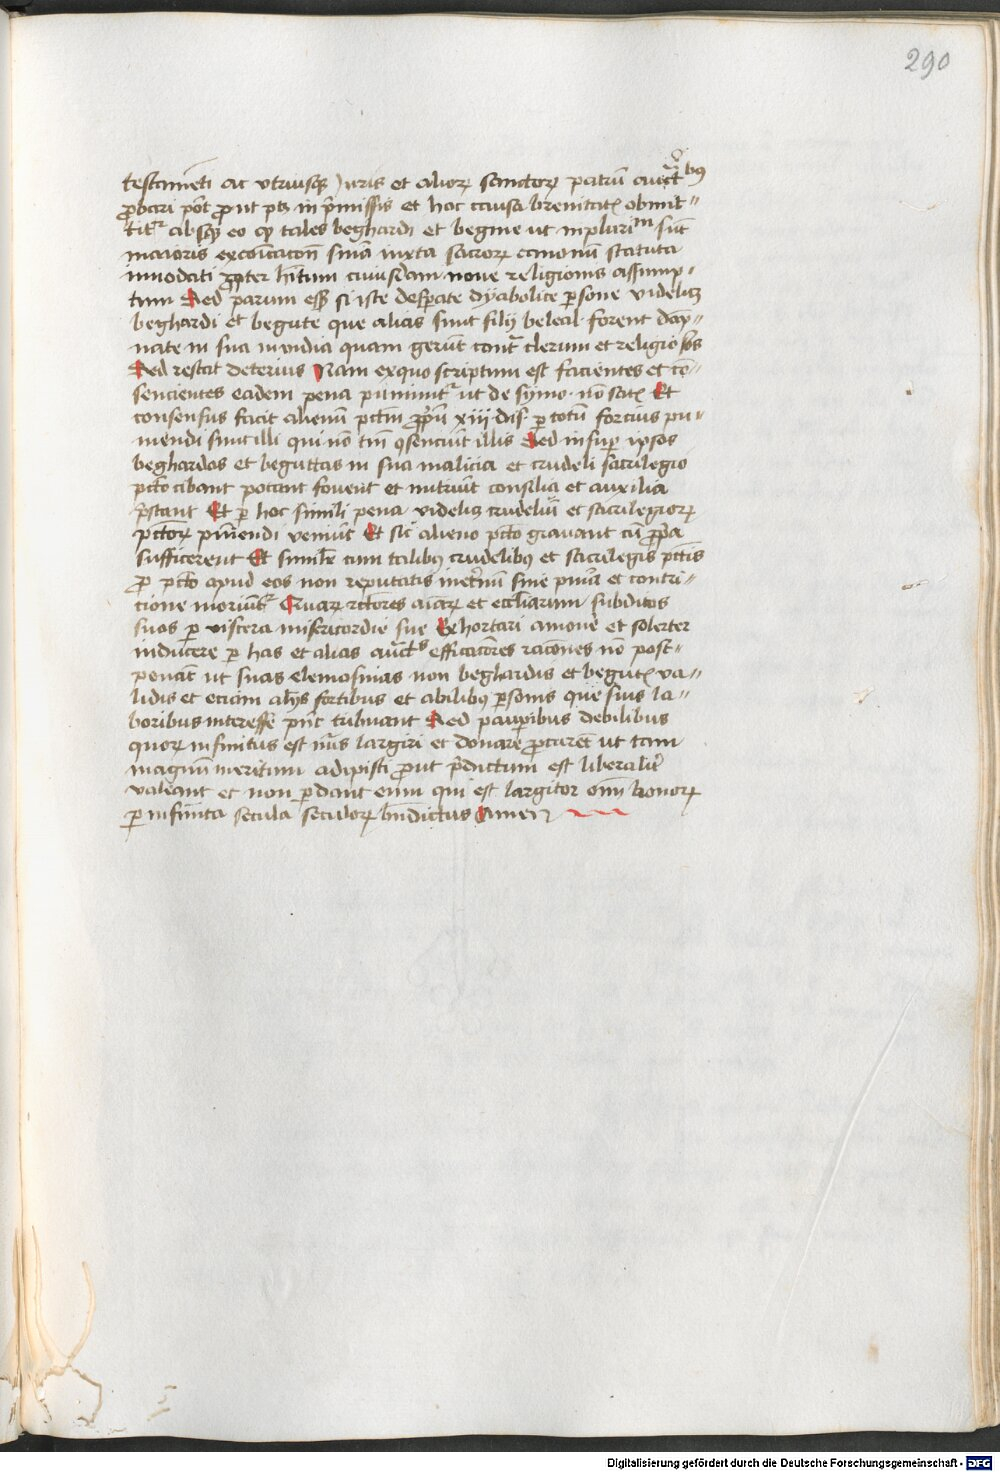 290
testamēti ac vtriusqꝫ Juris et alioꝝ sanctoꝝ patrū auct͛bꝫ
ꝓbari põt ꝓut ptꝫ in p̄missis et hoc causa breuitatꝭ obmit-
titᷣ absqꝫ eo ꝙ tales beghardi et begine ut inplurimͫ sūt
maioris excoīcacoñ snīa iuxta sacroꝝ canonū statuta
innodati ꝓpter hītum cuiusdam noue religionis assump-
tum Sed parum esset si iste desperate dyabolice ꝑsone videlicꝫ
beghardi et begute que alias sunt filij beleal forent dap-
nate in sua inuidia quam gerūt contͣ clerum et religiosos
Sed restat deterius Nam exquo scriptum est facientes et cō-
sencientes eadem pena puniunt᷑ ut de symo nō satꝭ Et
consensus facit alienū pctm̄ ꝓpriū xiij dis ꝑ totū forcius pu-
niendi sunt illi qui nō tm̄ ꝯsenciūt illis Sed insuꝑ ipsos
beghardos et beguttas in sua malicia et crudeli sacrilegio
pcto cibant potant fouent et nutriūt consilia et auxilia
p̄stant Et ꝑ hoc simili pena videlicꝫ crudeliū et sacrilegioꝝ
pctoꝝ puniendi veniūt Et sic alieno pcto grauant᷑ cū ꝓpria
sufficerent Et similiter cum talibꝫ crudelibꝫ et sacrilegis pctis
ꝓ pcto apud eos non reputatis inet̓nū sine pnīa et contri-
cione moriūt᷑ Quaꝝ rectores aīaꝝ et eccliarum subditos
suos ꝑ viscera misericordie sue Exhortari amouē et solerter
inducere ꝑ has et alias auct͛s efficaciores racōnes nō post-
ponāt ut suas elemosinas non beghardis et begutꝭ va-
lidis et eciam alijs fortibus et abilibꝫ ꝑsonis que suis la-
boribus interesse pn̄t tribuant Sed pauꝑibus debilibus
quoꝝ infinitus est nūs largiri et donare ꝓcurēt ut tam
magnū meritum adipisci ꝓut p̄dictum est liberalit̓
valeant et non ꝑdant eum qui est largitor om̄ bonoꝝ
ꝑ infinita secula seculoꝝ bn̄dictus Amen
Digitalisierung gefördert durch die Deutsche Forschungsgemeinschaft - DFG